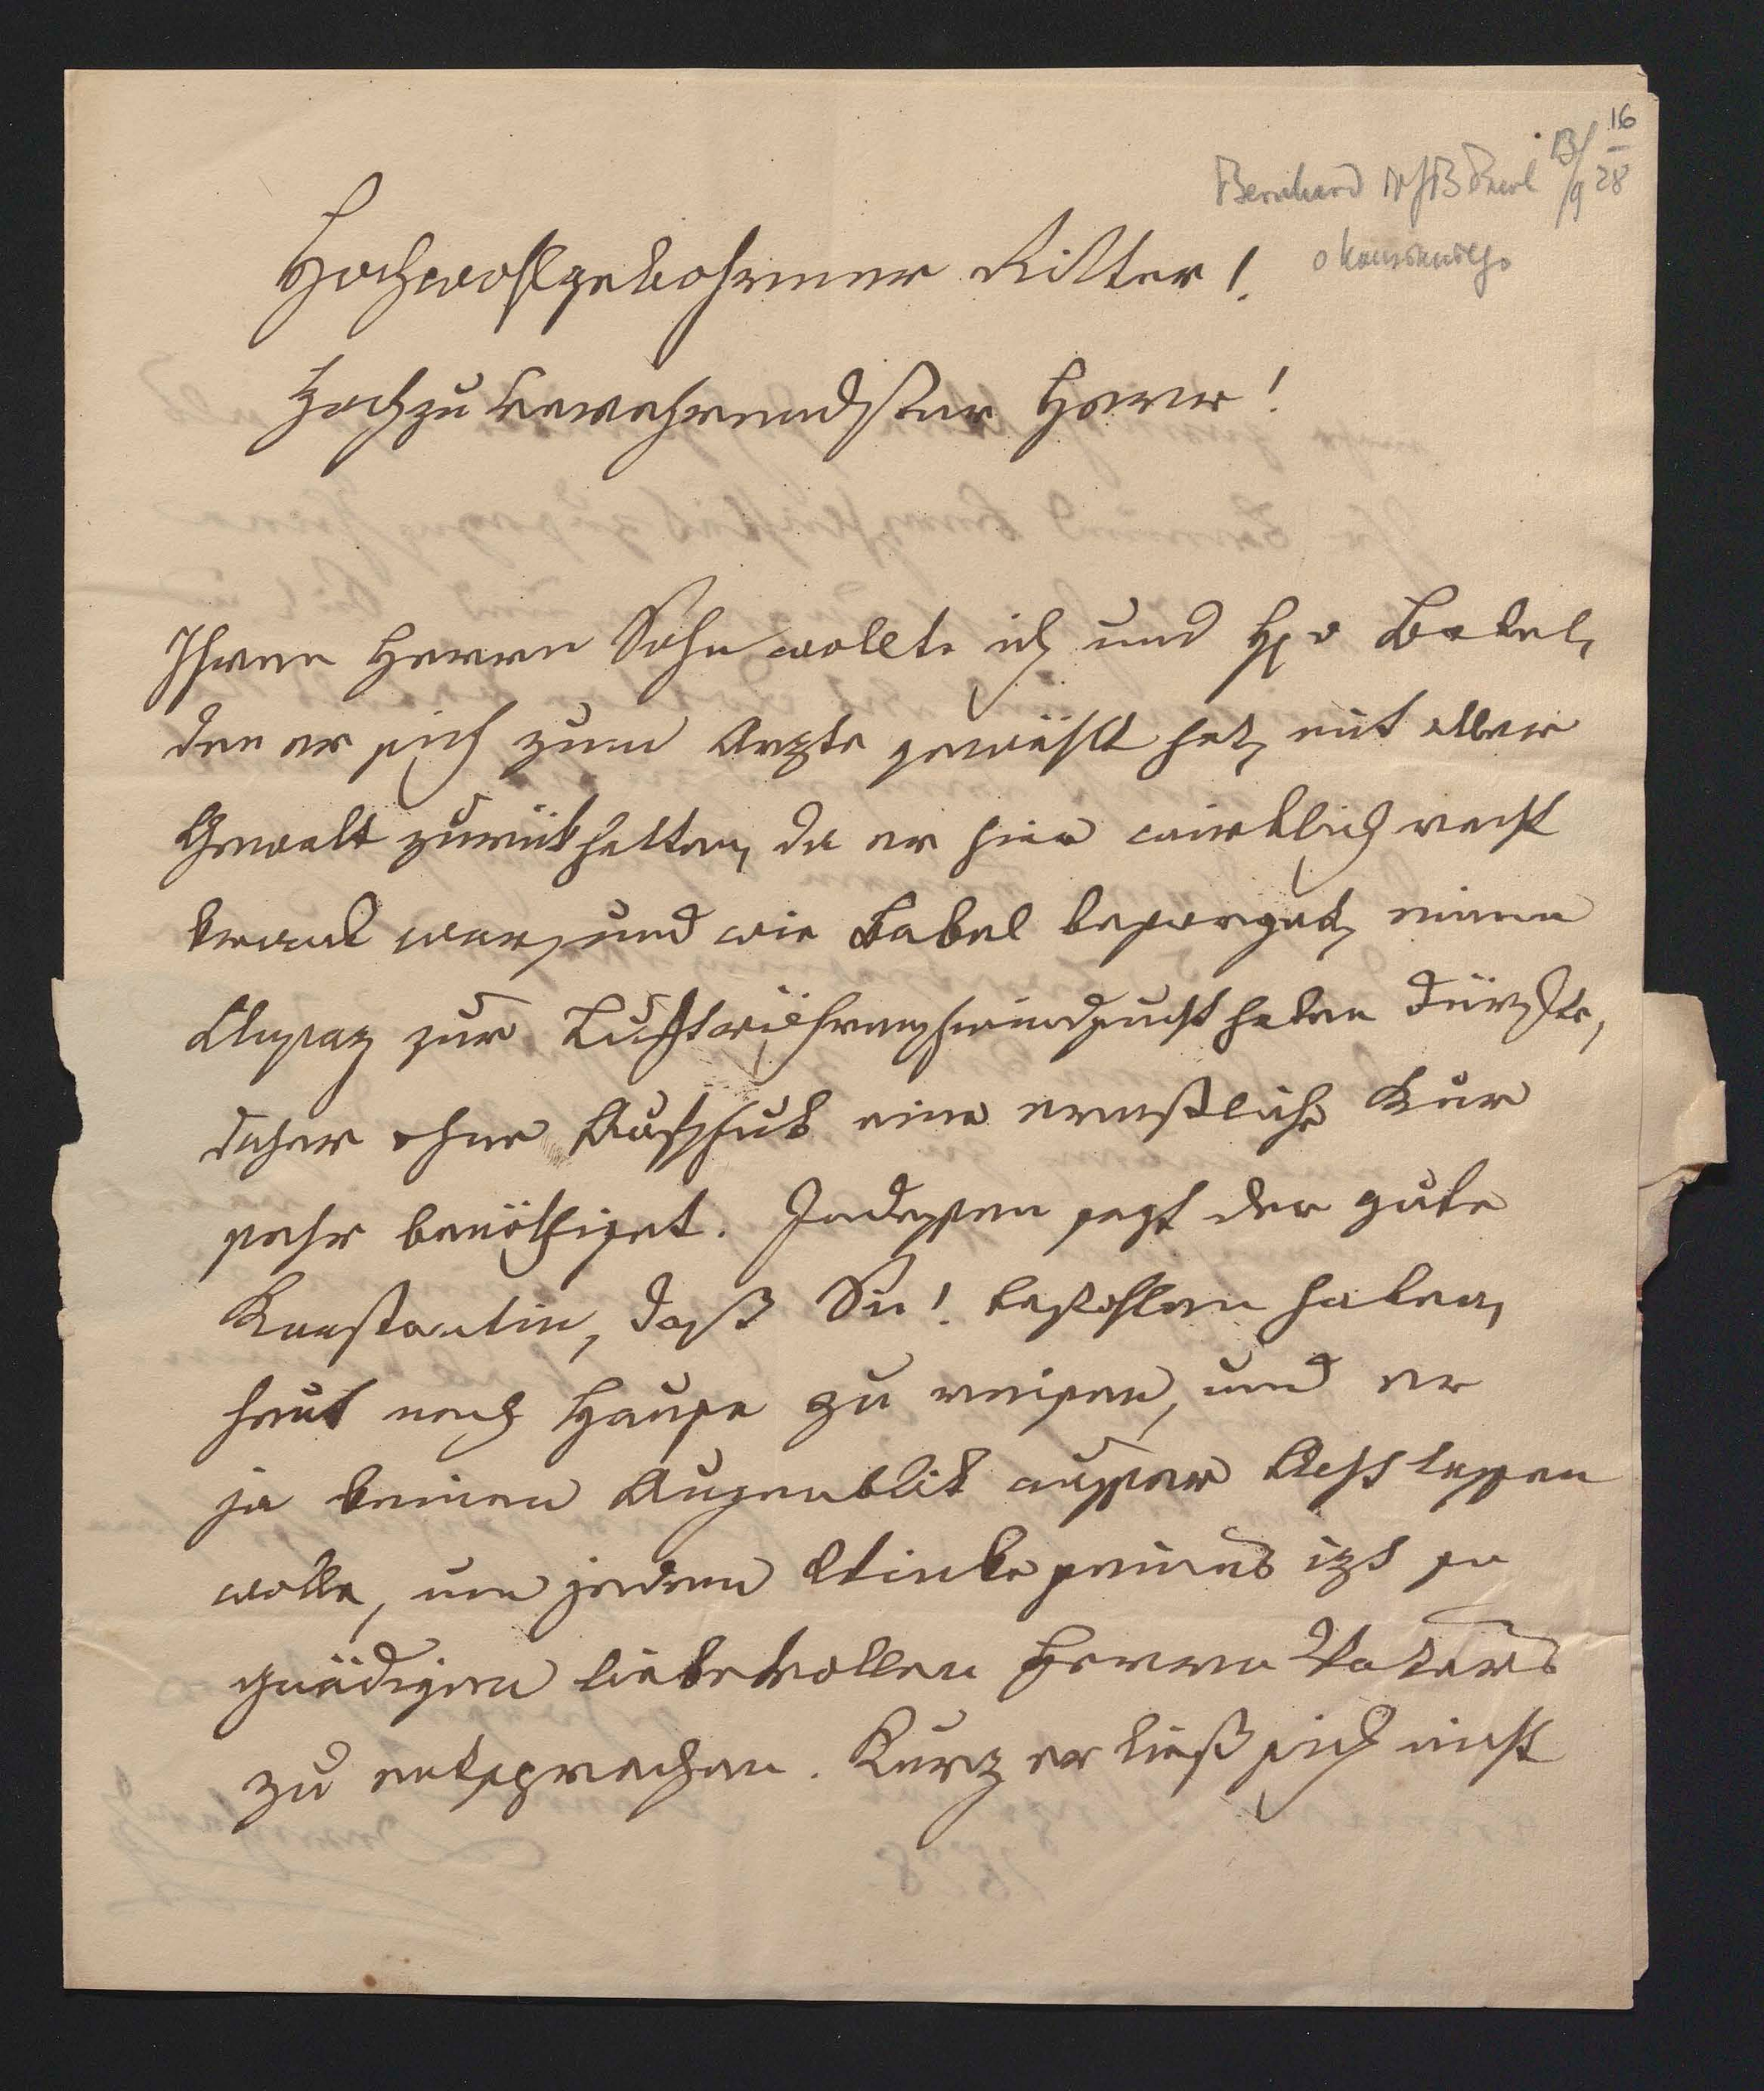 16
Bernhard 13/9 28
Hochwohlgebohrner Ritter!
Hochzuverehrendster Herr!
Ihren Herrn Sohn wollte ich und H v Babel,
den er sich zum Arzte gewählt hat, mit aller
Gewalt zurükhalten, da er hier wirklich recht
krank war, und wie Babel besorget, einen
Ansaz zur Luftröhrenschwindsucht haben dürfte,
daher ohne Aufschub eine ernstliche Kur
sehr benöthiget. Indessen sagt der gute
Konstantin, daß Sie! befohlen haben,
heut nach Hause zu reisen, und er
ja keinen Augenblik ausser Acht lassen
wolle, um jedem Winke seines izt so
gnädigen liebevollen Herrn Vaters
zu entsprechen. Kurz er ließ sich nicht